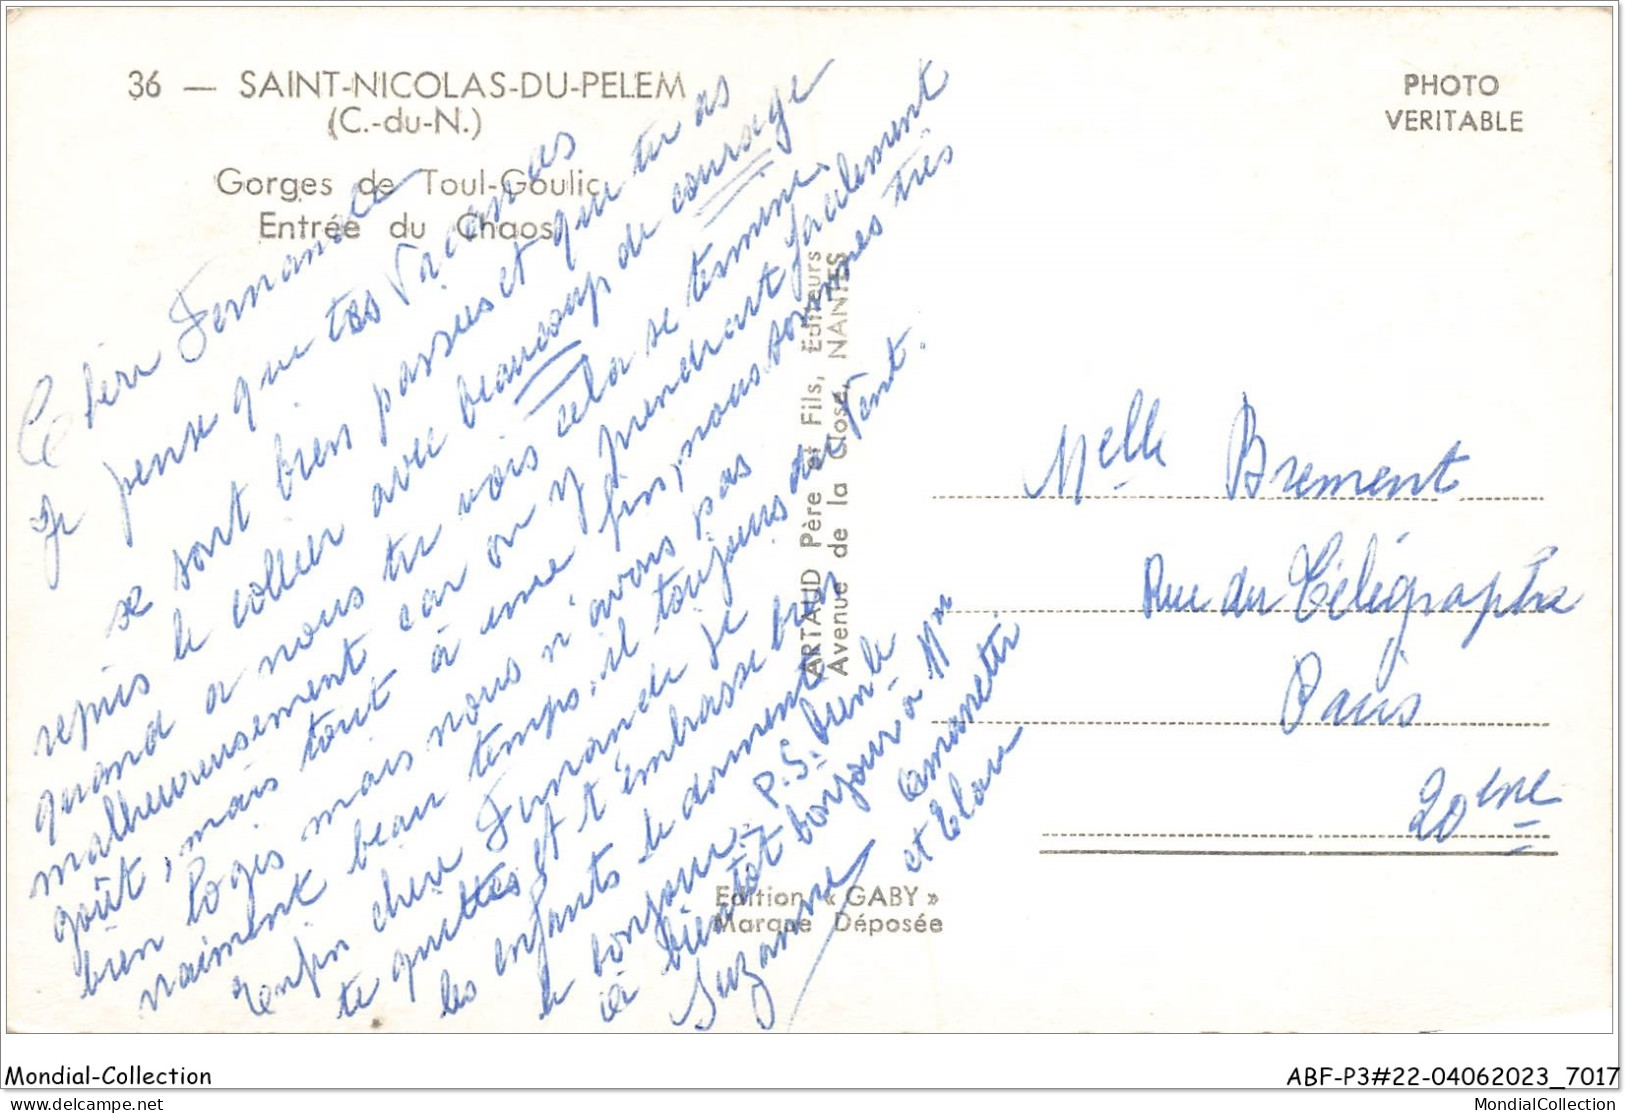 36 — SAINT-NICOLAS-DU-PELEM
(C.-du-N.)
Gorges de Toul-Goulic
Entrée du Chaos
PHOTO
VERITABLE
Chère Fernande
Je pense que tes vacances
se sont bien passées et que tu as
repris le collier avec beaucoup de courage
quand à nous tu vois cela se termine.
malheureusement car on y prendrait facilement
goût, mais tout à une fin, nous sommes très
bien logés mais nous n'avons pas
vraiment beau temps, il toujours du vent.
Enfin chère Fernande je
te quittes et t'embrasse bien
les enfants te donnent
le bonjour.
à bientôt
Suzanne
P.S. le
bonjour à Mme
et
ARTAUD Père et Fils, Editeurs
Avenue de la Close, NANTES
Edition « GABY »
Marque Déposée
Melle Brement
Rue du Télégraphe
Paris
20ème
Mondial-Collection
ABF-P3#22-04062023_7017
www.delcampe.net
MondialCollection